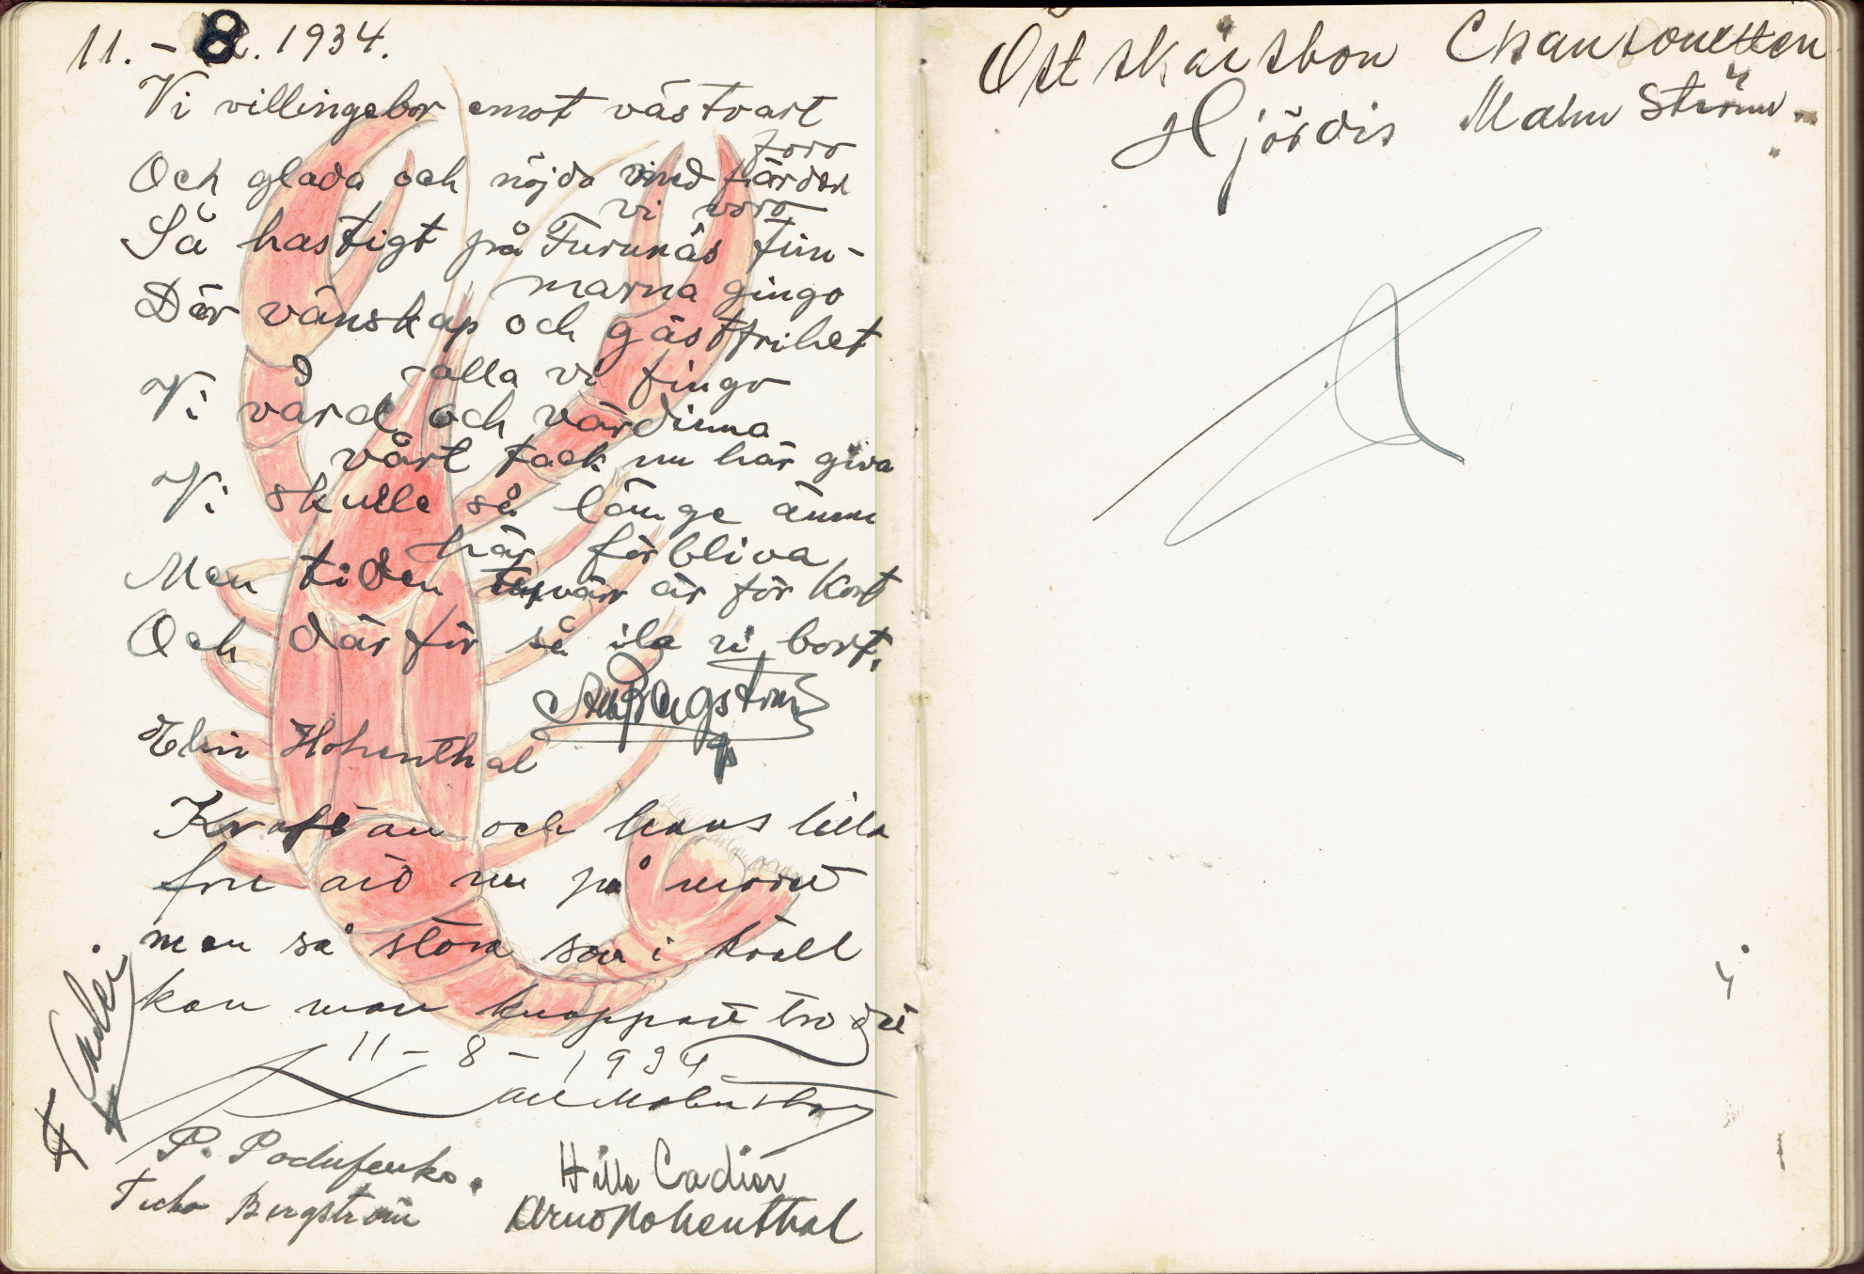 11. - 8. 1934.
Vi villingebor emot västvart
foro
Och glada och nöjda med färden
vi voro
Så hastigt på Furunäs tim-
marna gingo
Där vänskap och gästfrihet
vi alla vi fingo
Vi värd och värdinna
vårt tack nu här giva
Vi skulle så länge ännu
här förbliva
Men tiden tyvärr är för kort
Och därför så ila vi bort.
Bergström
Elin Hohenthal
Kräftan och hans lilla
fru äro nu på modet
men så stora som i kväll
kan man knappast tro det
11 - 8 - 1934
Cadier
P.
Hilla Cadier
Bergström
Arno Hohenthal
Östskärsbon Chansonetten
Hjördis Malmström.